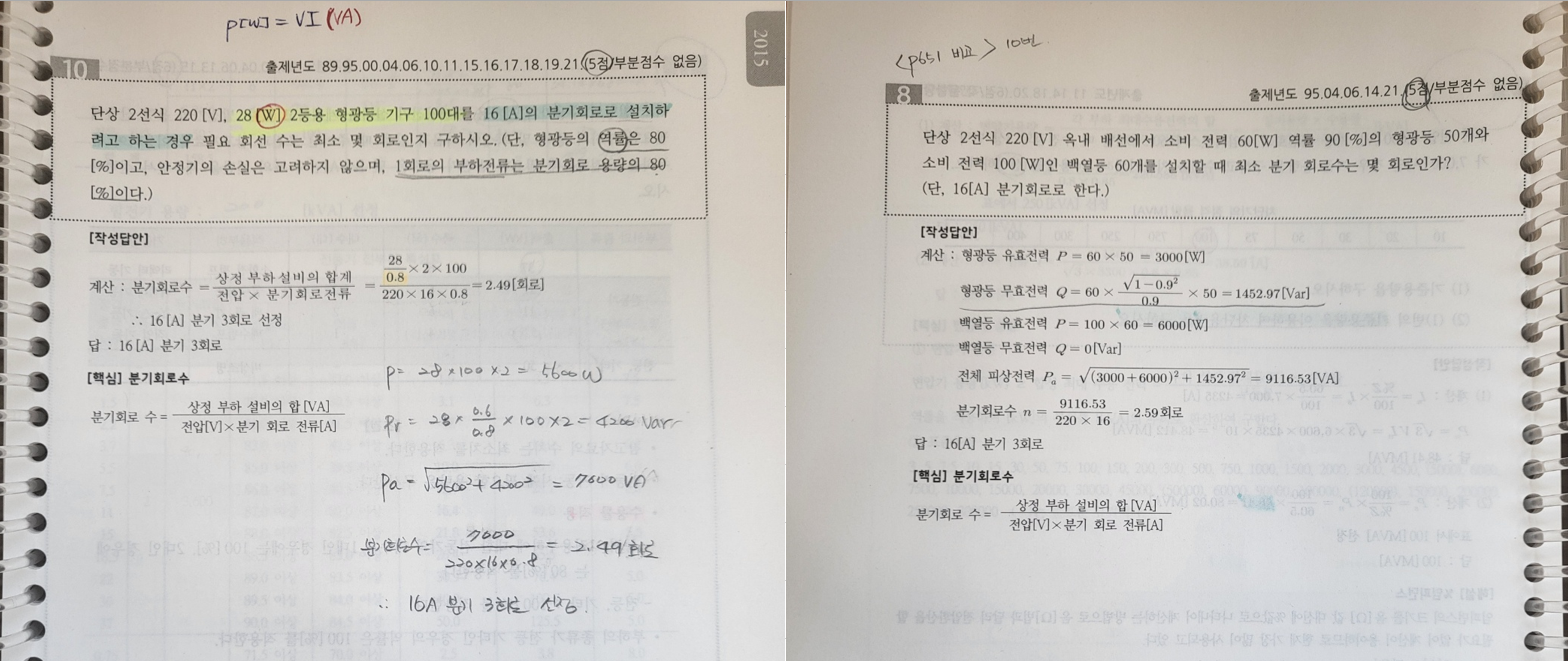 P[W] = VI (VA)
2015
10
출제년도 89.95.00.04.06.10.11.15.16.17.18.19.21.(5점/부분점수 없음)
단상 2선식 220 [V], 28 [W] 2등용 형광등 기구 100대를 16 [A]의 분기회로로 설치하
려고 하는 경우 필요 회선 수는 최소 몇 회로인지 구하시오. (단, 형광등의 역률은 80
[%]이고, 안정기의 손실은 고려하지 않으며, 1회로의 부하전류는 분기회로 용량의 80
[%]이다.)
[작성답안]
계산 : 분기회로수 = 상정 부하 설비의 합계 / 전압 × 분기회로전류 = 28/0.8 × 2 × 100 / 220 × 16 × 0.8 = 2.49 [회로]
∴ 16 [A] 분기 3회로 선정
답 : 16 [A] 분기 3회로
[핵심] 분기회로수
분기회로 수 = 상정 부하 설비의 합 [VA] / 전압[V] × 분기 회로 전류[A]
P = 28 × 100 × 2 = 5600 W
Pr = 28 × 0.6/0.8 × 100 × 2 = 4200 Var
Pa = √5600² + 4200² = 7000 VA
분기회로수 = 7000 / 220×16×0.8 = 2.49 회로
∴ 16A 분기 3회로 선정.
<P651 비교> 10번
8
출제년도 95.04.06.14.21.(5점/부분점수 없음)
단상 2선식 220 [V] 옥내 배선에서 소비 전력 60[W] 역률 90 [%]의 형광등 50개와
소비 전력 100 [W]인 백열등 60개를 설치할 때 최소 분기 회로수는 몇 회로인가?
(단, 16[A] 분기회로로 한다.)
[작성답안]
계산 : 형광등 유효전력 P = 60 × 50 = 3000[W]
형광등 무효전력 Q = 60 × √1-0.9² / 0.9 × 50 = 1452.97[Var]
백열등 유효전력 P = 100 × 60 = 6000[W]
백열등 무효전력 Q = 0[Var]
전체 피상전력 Pa = √(3000+6000)² + 1452.97² = 9116.53[VA]
분기회로수 n = 9116.53 / 220 × 16 = 2.59회로
답 : 16[A] 분기 3회로
[핵심] 분기회로수
분기회로 수 = 상정 부하 설비의 합 [VA] / 전압[V] × 분기 회로 전류[A]